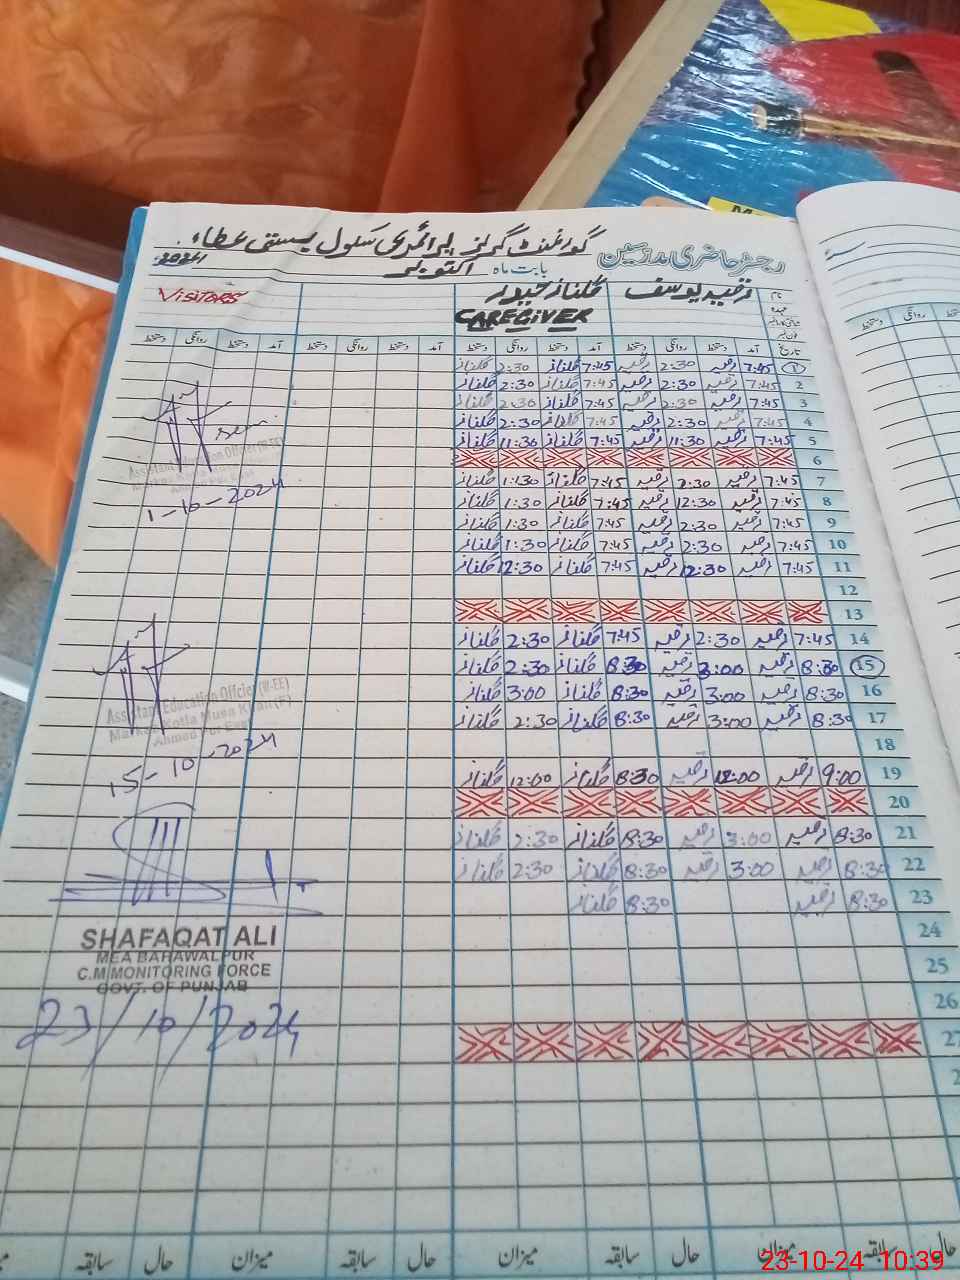 گورنمنٹ گرلز پرائمری سکول بستی عطاء
رجسٹر حاضری مدرسین
بابت ماہ اکتوبر 2024
نام رقیہ یوسف گلناز حیدر VISITORS
عہدہ CAREGIVER
تاریخ آمد دستخط روانگی دستخط آمد دستخط روانگی دستخط آمد دستخط روانگی دستخط آمد دستخط روانگی دستخط
1 7:45 رقیہ 2:30 رقیہ 7:45 گلناز 2:30 گلناز
2 7:45 رقیہ 2:30 رقیہ 7:45 گلناز 2:30 گلناز
3 7:45 رقیہ 2:30 رقیہ 7:45 گلناز 2:30 گلناز
4 7:45 رقیہ 2:30 رقیہ 7:45 گلناز 2:30 گلناز
5 7:45 رقیہ 11:30 رقیہ 7:45 گلناز 11:30 گلناز
6
7 7:45 رقیہ 2:30 رقیہ 7:45 گلناز 1:30 گلناز
8 7:45 رقیہ 12:30 رقیہ 7:45 گلناز 1:30 گلناز
9 7:45 رقیہ 2:30 رقیہ 7:45 گلناز 1:30 گلناز
10 7:45 رقیہ 2:30 رقیہ 7:45 گلناز 1:30 گلناز
11 7:45 رقیہ 12:30 رقیہ 7:45 گلناز 12:30 گلناز
12
13
14 7:45 رقیہ 2:30 رقیہ 7:45 گلناز 2:30 گلناز
15 8:30 رقیہ 3:00 رقیہ 8:30 گلناز 2:30 گلناز
16 8:30 رقیہ 3:00 رقیہ 8:30 گلناز 3:00 گلناز
17 8:30 رقیہ 3:00 رقیہ 8:30 گلناز 2:30 گلناز
18
19 9:00 رقیہ 12:00 رقیہ 8:30 گلناز 12:00 گلناز
20
21 8:30 رقیہ 3:00 رقیہ 8:30 گلناز 2:30 گلناز
22 8:30 رقیہ 3:00 رقیہ 8:30 گلناز 2:30 گلناز
23 8:30 رقیہ 8:30 گلناز
24
25
26
27
Assistant Education Officer (W-EE)
1-10-2024
Assistant Education Offcier (W-EE)
Markaz Kotla Musa Khan (F)
Ahmed Pur East
15-10-2024
SHAFAQAT ALI
MEA BAHAWALPUR
C.M MONITORING FORCE
GOVT. OF PUNJAB
23/10/2024
سابقہ حال میزان سابقہ حال میزان سابقہ حال میزان سابقہ حال
23-10-24 10:39